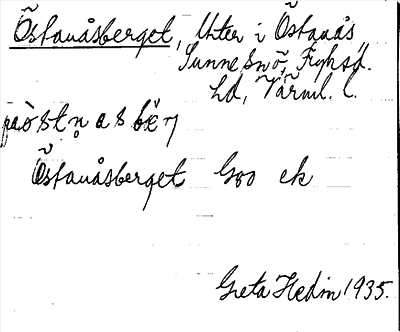 Östanåsberget, Uter i Östanås
Sunne snö, Fryksd.
hd, Värml. l.
på ò̀stn̥asbǽr
Östanåsberget Goo ek
Greta Hedin 1935.